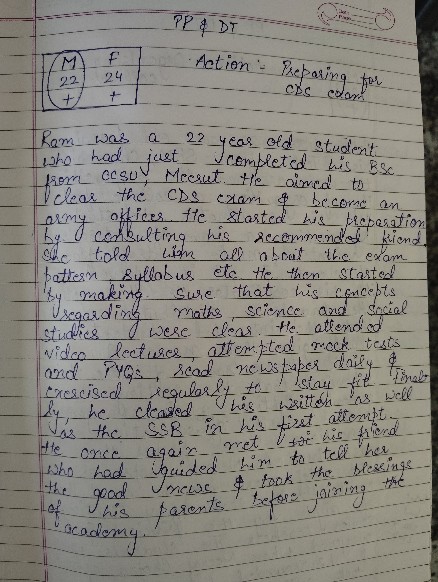 PP & DT
M F
22 24
+ +
Action :- Preparing for
CDS exam
Ram was a 22 year old student
who had just completed his BSc
from CCSU, Meerut. He aimed to
clear the CDS exam & become an
army officer. He started his preparation
by consulting his recommended friend.
She told him all about the exam
pattern, syllabus etc. He then started
by making sure that his concepts
regarding maths, science and social
studies were clear. He attended
video lectures, attempted mock tests
and PYQs, read newspaper daily &
exercised regularly to stay fit. Final-
ly, he cleared his written as well
as the SSB in his first attempt.
He once again met his friend
who had guided him to tell her
the good news & took the blessings
of his parents before joining the
academy.